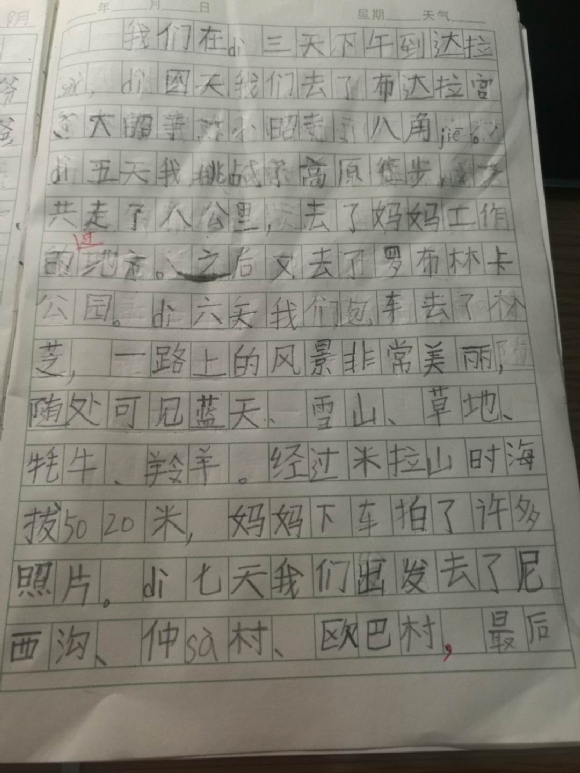 8月
年 月 日 星期 天气
我们在dì三天下午到达拉
sà，dì四天我们去了布达拉宫
大昭寺 小昭寺 八角jiē。
dì五天我挑战了高原徒步，
共走了八公里，去了妈妈工作
过
的地方。之后又去了罗布林卡
公园。dì六天我们包车去了林
芝，一路上的风景非常美丽，
随处可见蓝天、雪山、草地、
牦牛、羚羊。经过米拉山时海
拔5020米，妈妈下车拍了许多
照片。dì七天我们出发去了尼
西沟、仲sà村、欧巴村，最后